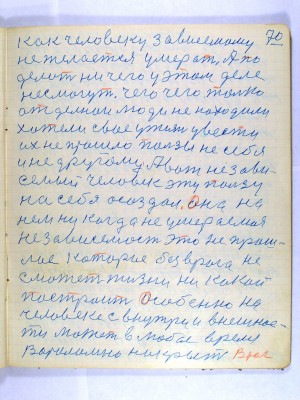 70
как человеку зависемому
не желается умерат, А по
делат ничего у этом деле
несмогут. чего чего толко
отделной люди не находили
хотели свое ужит увести
их не пришло ползы не себя
и не другому, А вот незави-
семый человек эту ползу
на себя осоздал, она на
нем никогда не умераемая
независемост это не прош-
лае которые без врага не
сможет жизни ни какой
построит Особенно на
человеке с внутри и внешнос-
ти может в любое время
накрыт Враг